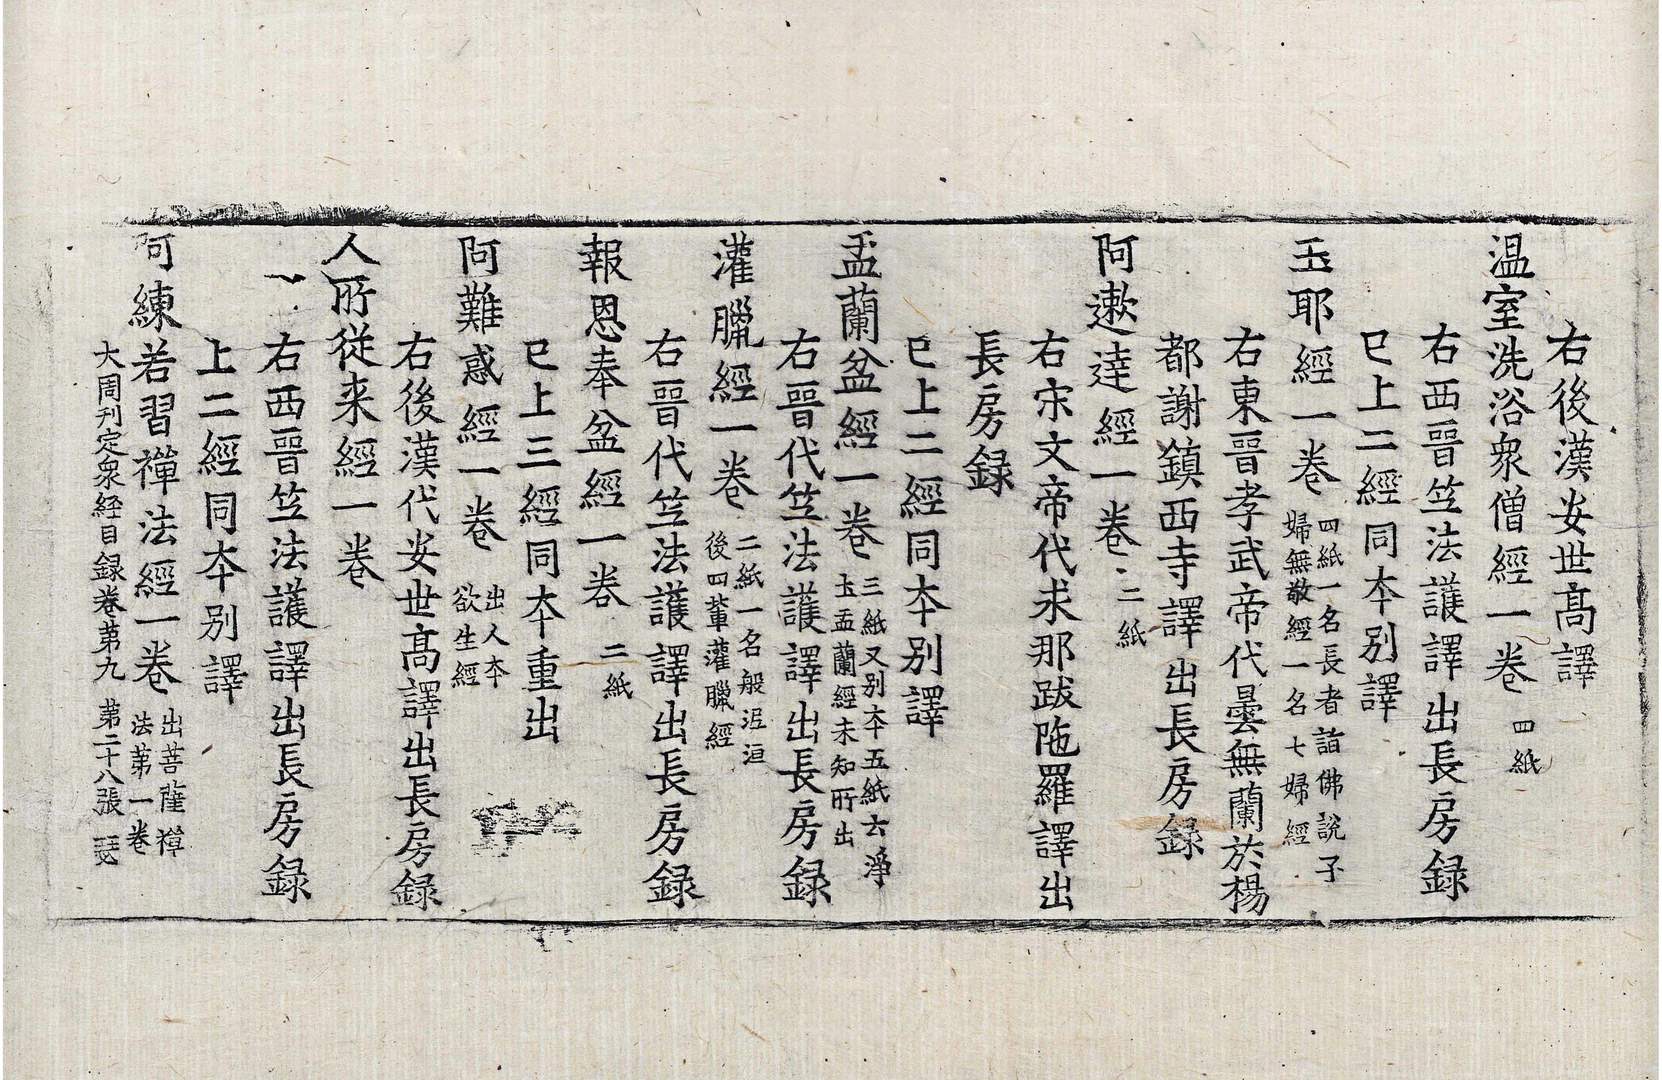 右後漢安世髙譯
温室洗浴衆僧經一卷 四紙
右西晉竺法護譯出長房録
已上二經同本別譯
玉耶經一卷 四紙一名長者詣佛說子
婦無敬經一名七婦經
右東晉孝武帝代曇無蘭於楊
都謝鎮西寺譯出長房録
阿遬達經一卷 二紙
右宋文帝代求那跋陁羅譯出
長房録
已上二經同本別譯
盂蘭盆經一卷 三紙又別本五紙六淨
土盂蘭經未知所出
右晉代竺法護譯出長房録
灌臘經一卷 二紙一名般泥洹
後四輩灌臘經
右晉代竺法護譯出長房録
報恩奉盆經一卷 二紙
已上三經同本重出
阿難惑經一卷 出人本
欲生經
右後漢代安世髙譯出長房録
人所從来經一卷
右西晉竺法護譯出長房録
上二經同本別譯
阿練若習禪法經一卷 出菩薩禪
法第一卷
大周刊定衆経目録卷第九 第二十八張